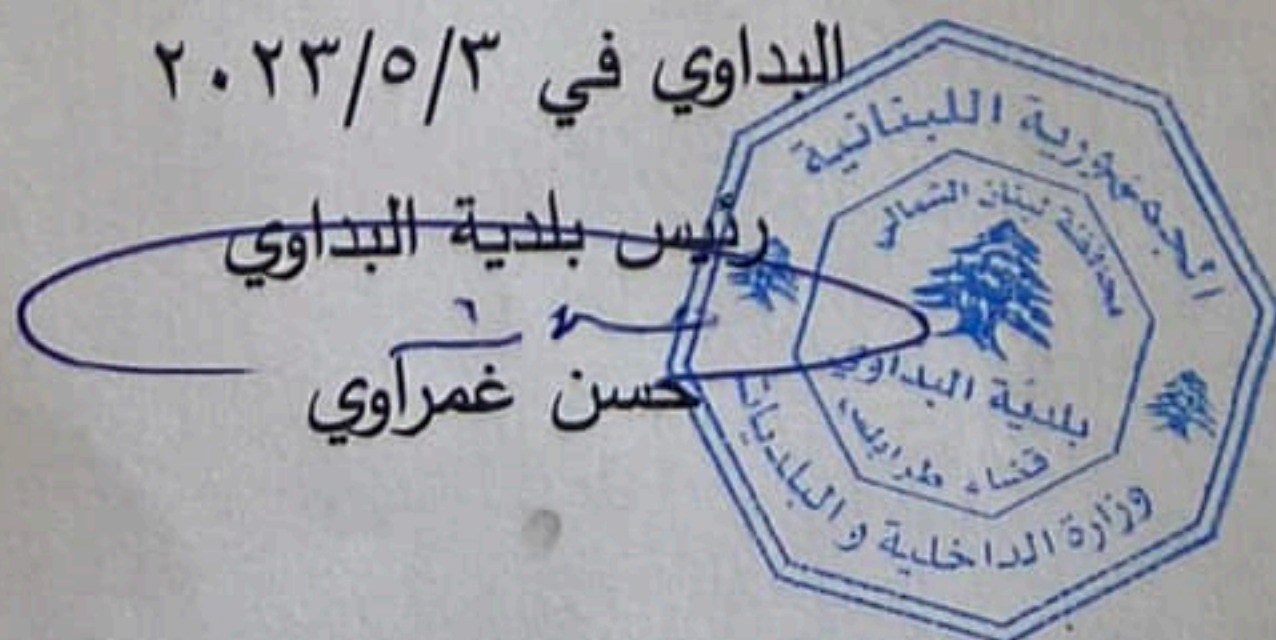 البداوي في ٢٠٢٣/٥/٣
رئيس بلدية البداوي
حسن غمراوي
الجمهورية اللبنانية
محافظة لبنان الشمالي
بلدية البداوي
قضاء طرابلس
وزارة الداخلية و البلديات